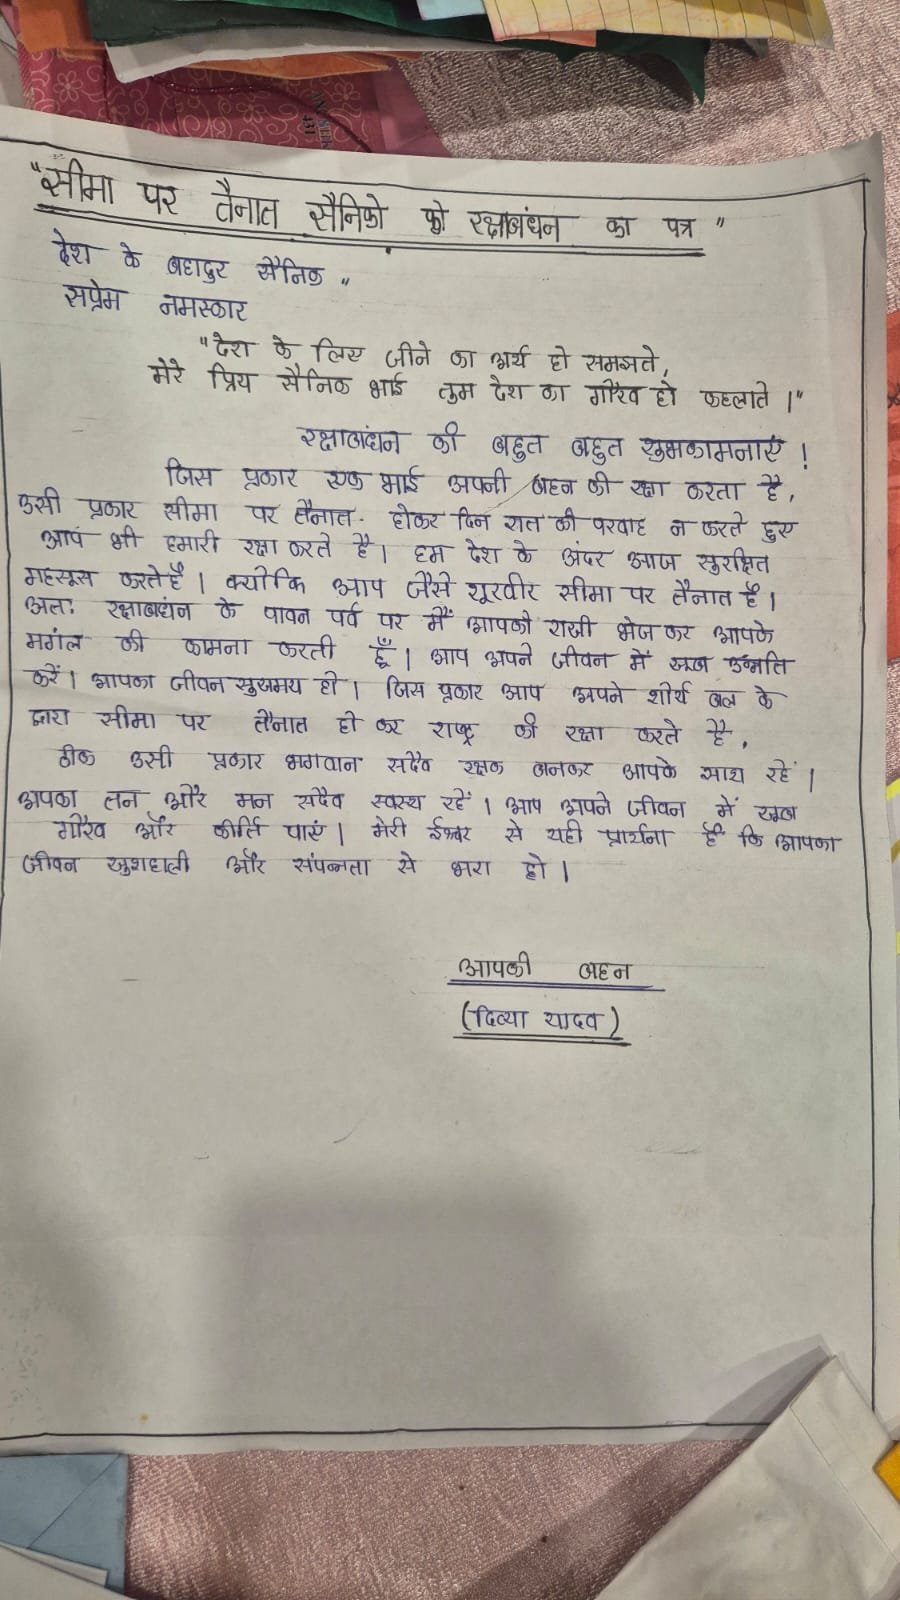 "सीमा पर तैनात सैनिको को रक्षाबंधन का पत्र"
देश के बहादुर सैनिक "
सप्रेम नमस्कार
"देश के लिए जीने का अर्थ हो समझते,
मेरे प्रिय सैनिक भाई तुम देश का गौरव हो कहलाते ।"
रक्षाबंधन की बहुत बहुत शुभकामनाएं !
जिस प्रकार एक भाई अपनी बहन की रक्षा करता है,
उसी प्रकार सीमा पर तैनात होकर दिन रात की परवाह न करते हुए
आप भी हमारी रक्षा करते है । हम देश के अंदर आज सुरक्षित
महसूस करते है । क्योकि आप जैसे शूरवीर सीमा पर तैनात है ।
अतः रक्षाबंधन के पावन पर्व पर मैं आपको राखी भेज कर आपके
मगंल की कामना करती हूँ । आप अपने जीवन में खूब उन्नति
करें । आपका जीवन सुखमय हो । जिस प्रकार आप अपने शौर्य बल के
द्वारा सीमा पर तैनात हो कर राष्ट्र की रक्षा करते है,
ठीक उसी प्रकार भगवान सदैव रक्षक बनकर आपके साथ रहें ।
आपका तन और मन सदैव स्वस्थ रहें । आप अपने जीवन में खूब
गौरव और कीर्ति पाएं । मेरी ईश्वर से यही प्रार्थना है कि आपका
जीवन खुशहाली और संपन्नता से भरा हो ।
आपकी बहन
(दिव्या यादव)